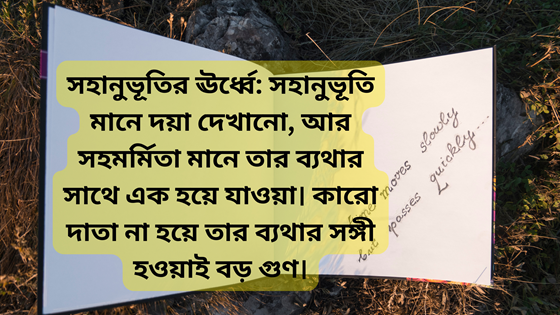 সহানুভূতির ঊর্ধ্বে: সহানুভূতি
মানে দয়া দেখানো, আর
সহমর্মিতা মানে তার ব্যথার
সাথে এক হয়ে যাওয়া। কারো
দাতা না হয়ে তার ব্যথার সঙ্গী
হওয়াই বড় গুণ।
moves slowly
but passes quickly...